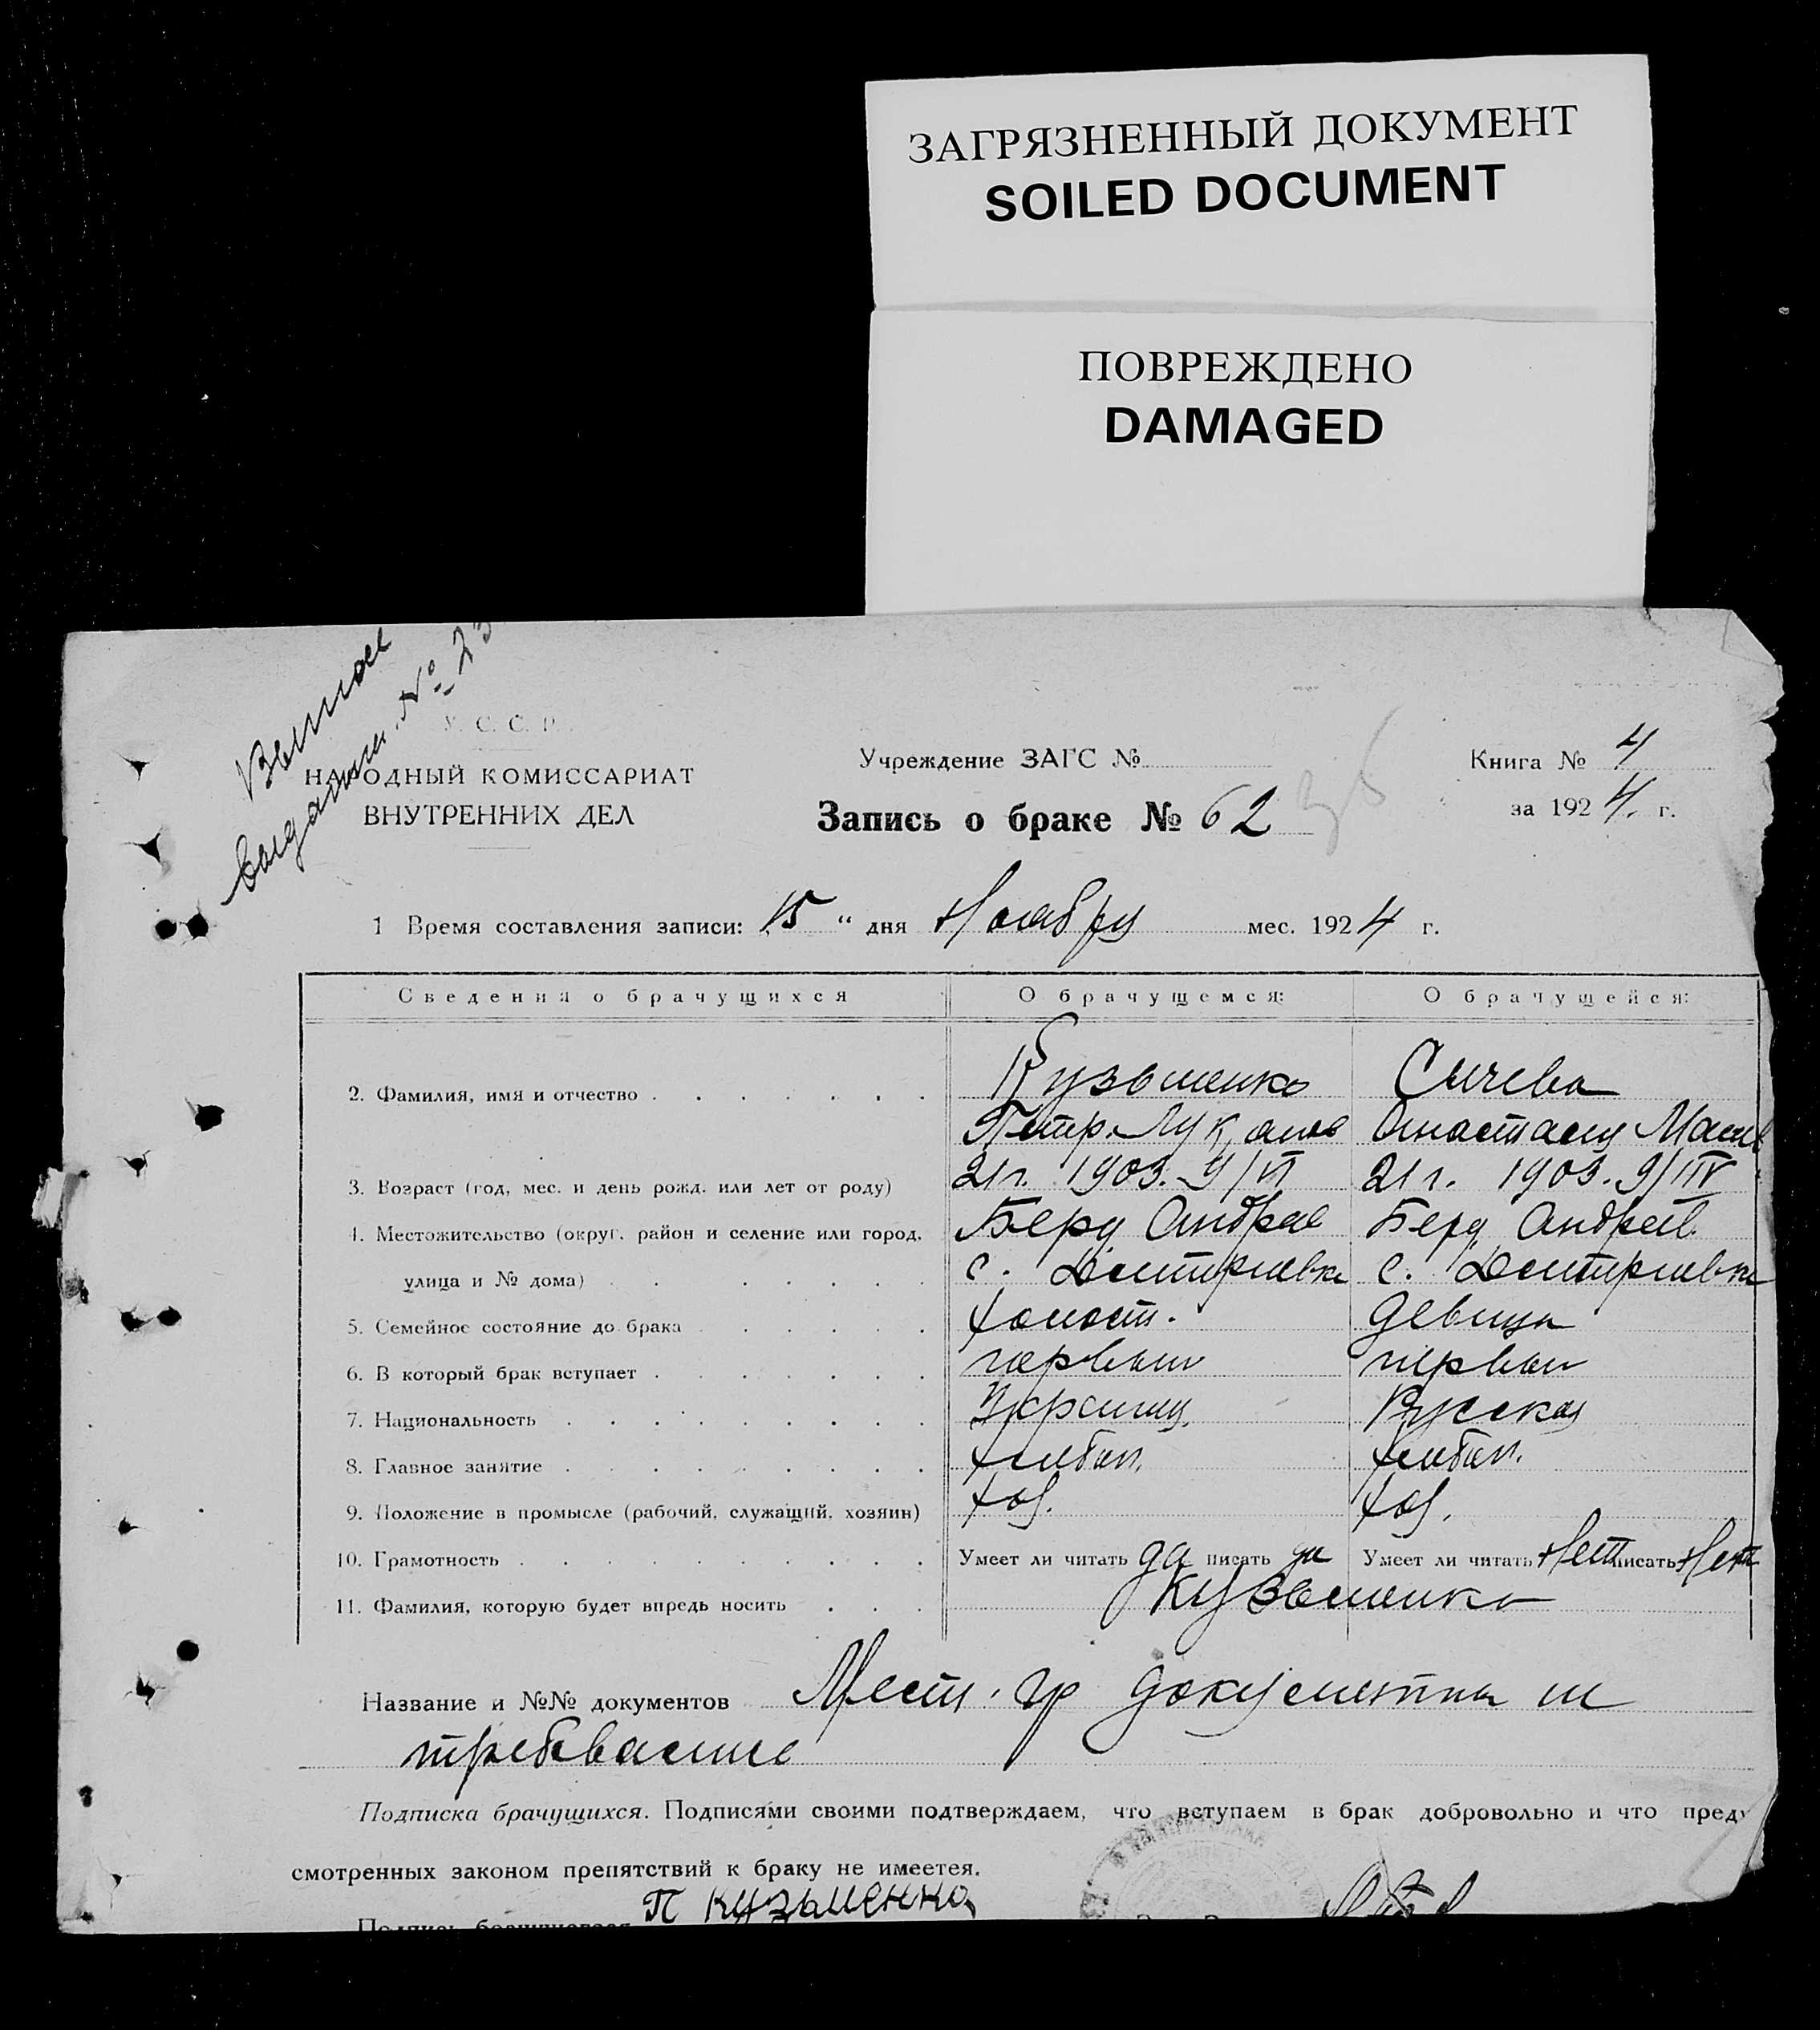 ЗАГРЯЗНЕННЫЙ ДОКУМЕНТ
SOILED DOCUMENT
ПОВРЕЖДЕНО
DAMAGED
№ 23
У. С. С. Р.
НАРОДНЫЙ КОМИССАРИАТ
ВНУТРЕННИХ ДЕЛ
Учреждение ЗАГС №
Запись о браке № 62
Книга № 4
за 1924 г.
1 Время составления записи: 15 " дня Ноября мес. 1924 г.
Сведения о брачущихся О брачущемся: О брачущейся:
2. Фамилия, имя и отчество Кузьменко Сычева
Петр. Лукянов Анастасия
3. Возраст (год, мес. и день рожд. или лет от роду) 21 г. 1903. 9/VI 21 г. 1903. 9/IV
4. Местожительство (округ, район и селение или город, Берд Андрее Берд Андреев.
улица и № дома) с. Дмитриевка с. Дмитриевка
5. Семейное состояние до брака холост. девица
6. В который брак вступает первый первый
7. Национальность Украинц. Русская
8. Главное занятие хлебоп. хлебоп.
9. Положение в промысле (рабочий, служащий, хозяин) хоз. хоз.
10. Грамотность Умеет ли читать да писать да Умеет ли читать Нет писать Нет
11. Фамилия, которую будет впредь носить Кузьменко
Название и №№ документов Мест. гр документы и
требование
Подписка брачущихся. Подписями своими подтверждаем, что вступаем в брак добровольно и что преду
смотренных законом препятствий к браку не имеется.
П Кузьменко